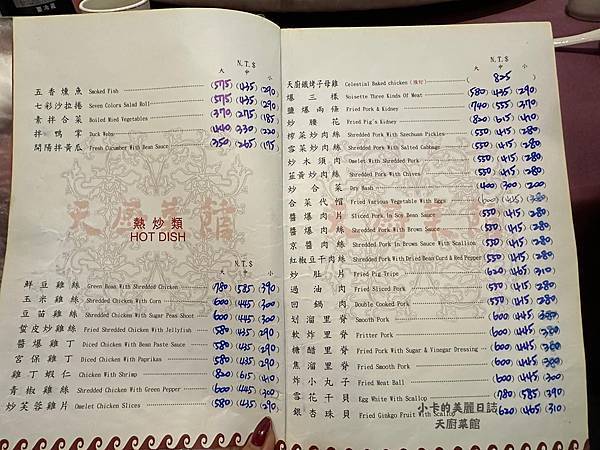 N.T.$
大 中 小
五香燻魚 Smoked Fish (575)(435)(290)
七彩沙拉捲 Seven Colors Salad Roll (575)(435)(290)
素拌合菜 Boiled Mixed Vegetables (370)(275)(185)
拌鴨掌 Duck Webs (440)(330)(220)
開陽拌黃瓜 Fresh Cucumber With Bean Sauce (350)(265)(175)
天廚菜館
熱炒類
HOT DISH
N.T.$
大 中 小
鮮豆雞絲 Green Bean With Shredded Chicken (780)(585)(390)
玉米雞絲 Shredded Chicken With Corn (600)(445)(300)
豆苗雞絲 Shredded Chicken With Sugar Peas Shoot (600)(445)(300)
蜇皮炒雞絲 Fried Shredded Chicken With Jellyfish (580)(435)(290)
醬爆雞丁 Diced Chicken With Bean Paste Sauce (580)(435)(290)
宮保雞丁 Diced Chicken With Paprikas (580)(435)(290)
雞丁蝦仁 Chicken With Shrimp (820)(615)(410)
青椒雞絲 Shredded Chicken With Green Pepper (600)(445)(300)
炒芙蓉雞片 Omelet Chicken Slices (580)(435)(290)
N.T.$
大 中 小
天廚鐵烤子母雞 Celestial Baked chicken ( 825 )
爆三樣 Noisette Three Kinds Of Meat (580)(435)(290)
鹽爆兩條 Fried Pork & Kidney (740)(555)(370)
炒腰花 Fried Pig's Kidney (820)(615)(410)
榨菜炒肉絲 Shredded Pork With Szechuan Pickles (550)(415)(280)
雪菜炒肉絲 Shredded Pork With Salted Cabbage (550)(415)(280)
炒木須肉 Omelet With Shredded Pork (550)(415)(280)
韮黃炒肉絲 Shredded Pork With Chives (550)(415)(280)
炒合菜 Dry Hash (400)(300)(200)
合菜代帽 Fried Various Vegetable With Eggs (600)(445)
醬爆肉片 Sliced Pork in Soy Bean Sauce (550)(415)(280)
醬爆肉絲 Shredded Pork With Brown Sauce (550)(415)(280)
京醬肉絲 Shredded Pork in Brown Sauce With Scallion (550)(415)(280)
紅椒豆干肉絲 Shredded Pork With Dried Bean Curd & Red Pepper (550)(415)(280)
炒肚片 Fried Pig Tripe (620)(465)(310)
過油肉 Fried Sliced Pork (550)(415)(280)
回鍋肉 Double Cooked Pork (550)(415)(280)
划溜里脊 Smooth Pork (600)(445)
軟炸里脊 Fritter Pork (600)(445)
糖醋里脊 Fried Pork With Sugar & Vinegar Dressing (600)(445)
焦溜里脊 Fried Smooth Pork (600)(445)
炸小丸子 Fried Meat Ball (600)(445)
雪花干貝 Egg White With Scallop (780)(585)(390)
銀杏珠貝 Fried Ginkgo Fruit With Scallop (620)(465)(310)
小卡的美麗日誌
天廚菜館